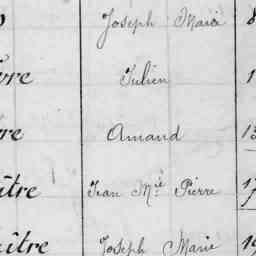 Joseph Marie 8
vre Julien 1
re Amand 13
aître Jean Mie Pierre 17
aître Joseph Marie 19